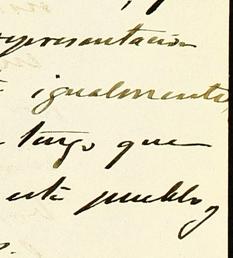 representación
igualmente,
tengo que
este pueblo y